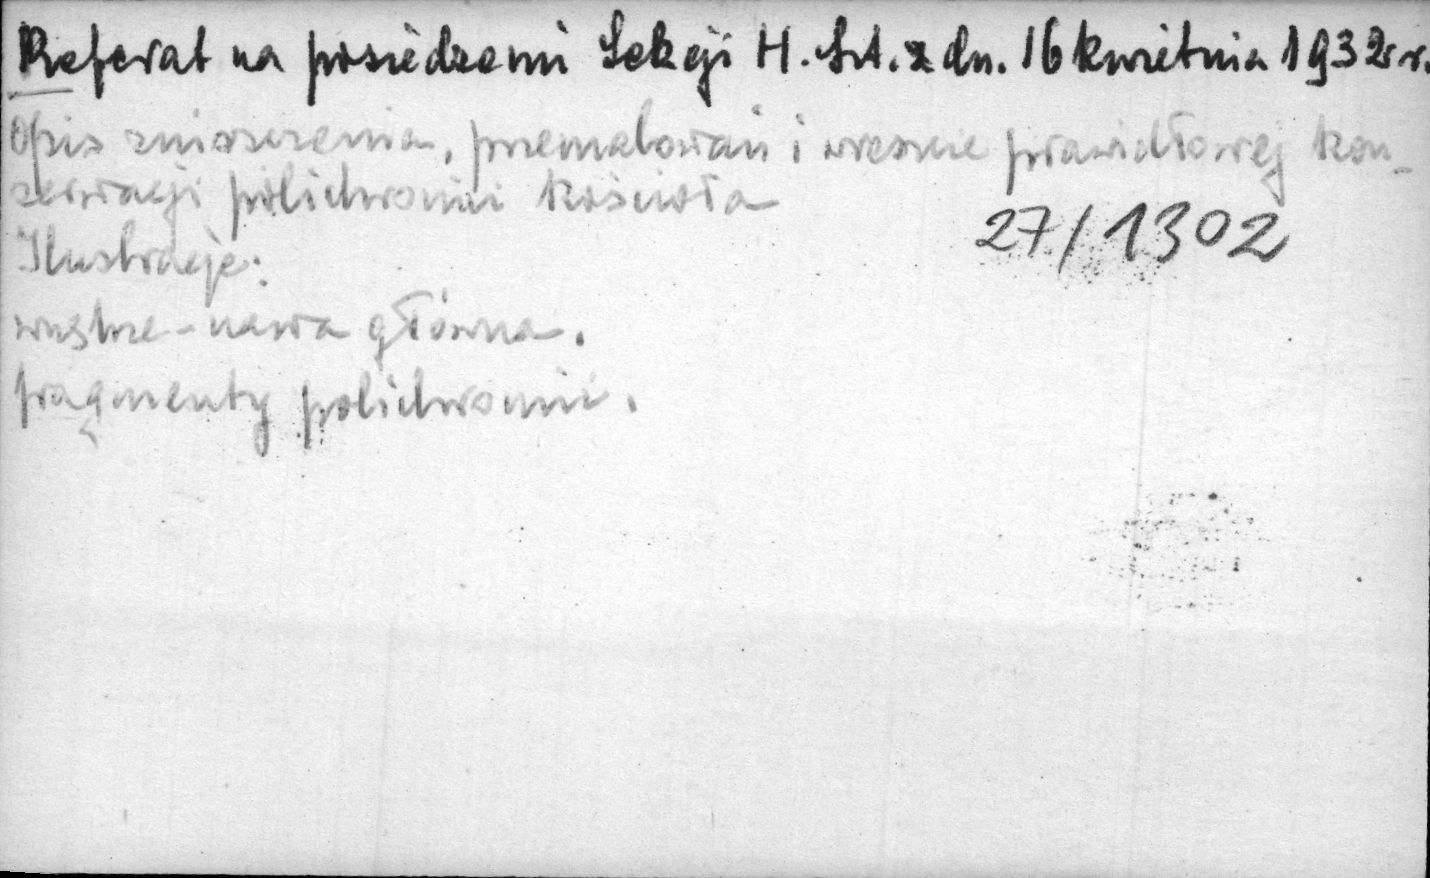 Referat na posiedzeniu Sekcji H. Szt. z dn. 16 kwietnia 1932 r.
Opis zniszczenia, przemalowań i wreszcie prawidłowej kon-
serwacji polichromii kościoła
27/1302
Ilustracje:
wnętrze - nawa główna.
fragmenty polichromii.